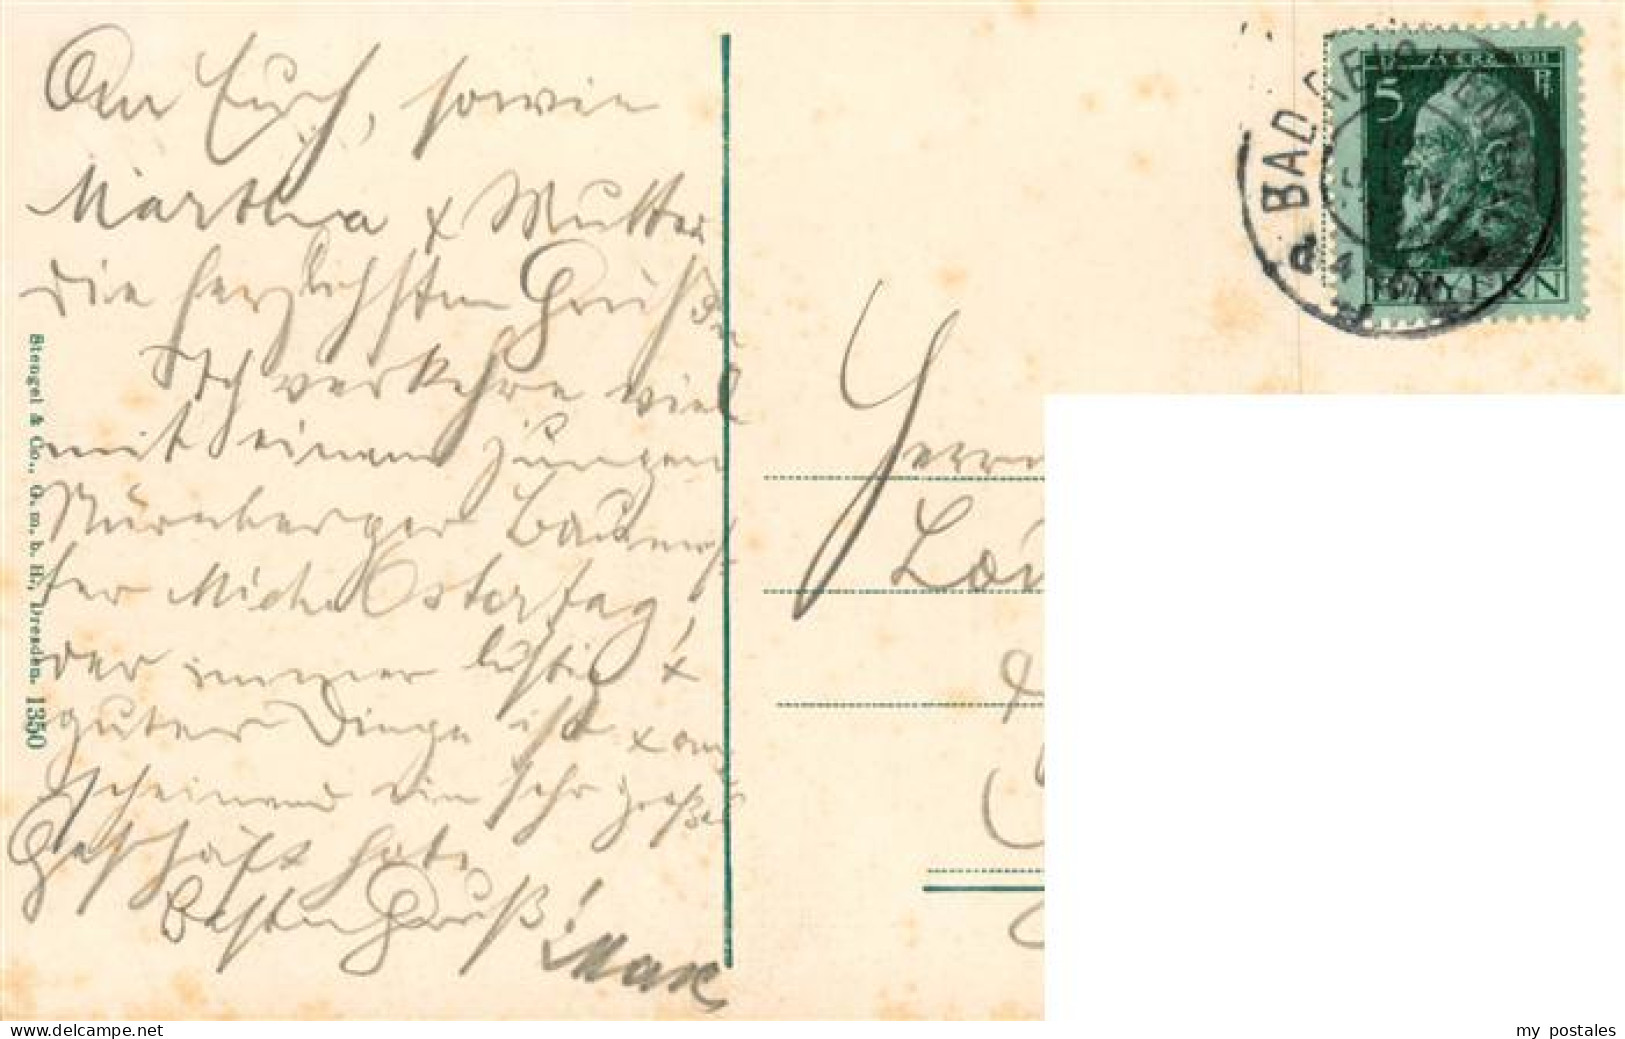 An Euch, sowie
Martha & Mutter
die herzlichsten Grüße
Ich verkehre viel
mit einem jungen
Nürnberger Baumeis-
ter Michel Ostertag,
der immer lustig &
guter Dinge ist & an-
scheinend ein sehr großes
Geschäft hat.
Besten Gruß!
Max
Stengel & Co., G. m. b. H., Dresden. 1350
BAD REICHENHALL
5
1911
BAYERN
Herrn
my postales